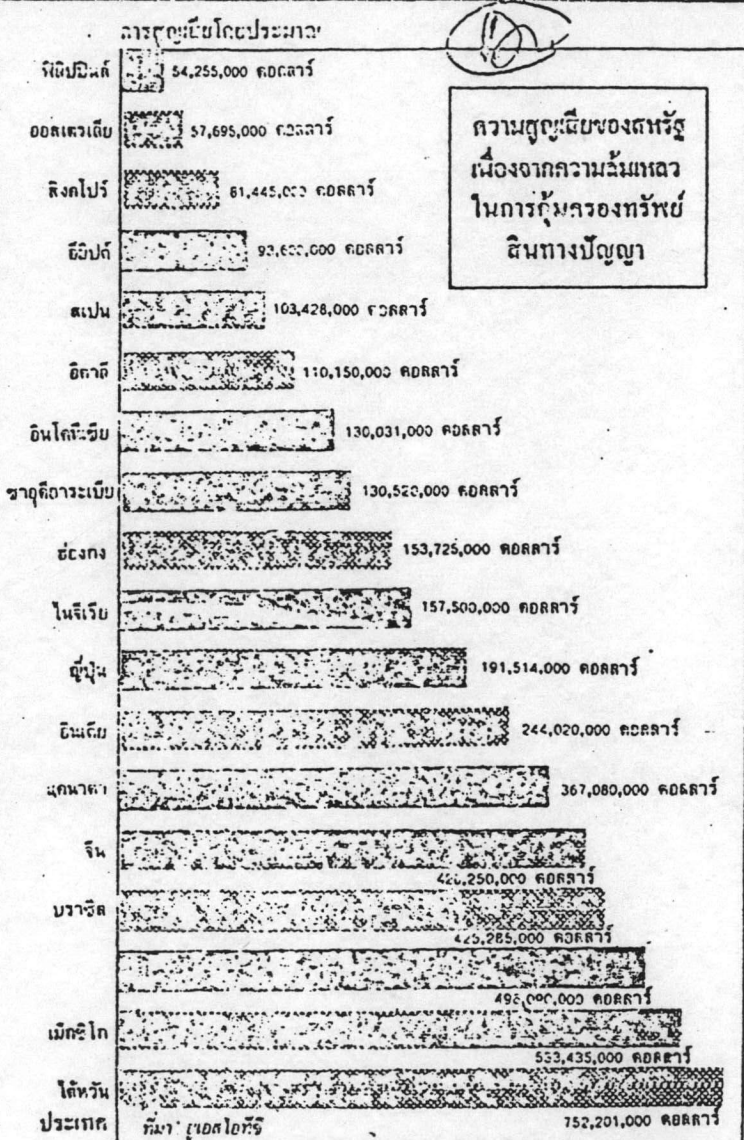 การสูญเสียโดยประมาณ
ความสูญเสียของสหรัฐ
เนื่องจากความล้มเหลว
ในการคุ้มครองทรัพย์
สินทางปัญญา
ฟิลิปปินส์ 54,255,000 ดอลลาร์
ออสเตรเลีย 57,695,000 ดอลลาร์
สิงคโปร์ ดอลลาร์
อียิปต์ ดอลลาร์
สเปน 103,428,000 ดอลลาร์
อิตาลี 110,150,000 ดอลลาร์
อินโดนีเซีย 130,031,000 ดอลลาร์
ซาอุดีอาระเบีย 130,520,000 ดอลลาร์
ฮ่องกง 153,725,000 ดอลลาร์
ไนจีเรีย 157,500,000 ดอลลาร์
ญี่ปุ่น 191,514,000 ดอลลาร์
อินเดีย 244,020,000 ดอลลาร์
แคนาดา 367,080,000 ดอลลาร์
จีน ดอลลาร์
บราซิล 425,285,000 ดอลลาร์
ดอลลาร์
เม็กซิโก 533,435,000 ดอลลาร์
ไต้หวัน 752,201,000 ดอลลาร์
ประเทศ ที่มา ยูเอสไอทีซี